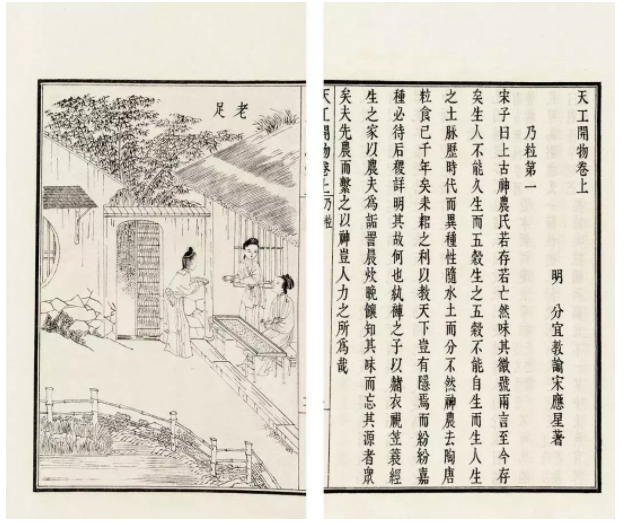 天工開物卷上
明　分宜教諭宋應星著
乃粒第一
宋子曰上古神農氏若存若亡然味其徽號兩言至今存
矣生人不能久生而五穀生之五穀不能自生而生人生
之土脉歷時代而異種性隨水土而分不然神農去陶唐
粒食已千年矣耒耜之利以教天下豈有隱焉而紛紛嘉
種必待后稷詳明其故何也紈褲之子以赭衣視笠蓑經
生之家以農夫為詬詈晨炊晚饟知其味而忘其源者眾
矣夫先農而繫之以神豈人力之所為哉
天工開物卷上 乃粒
老足